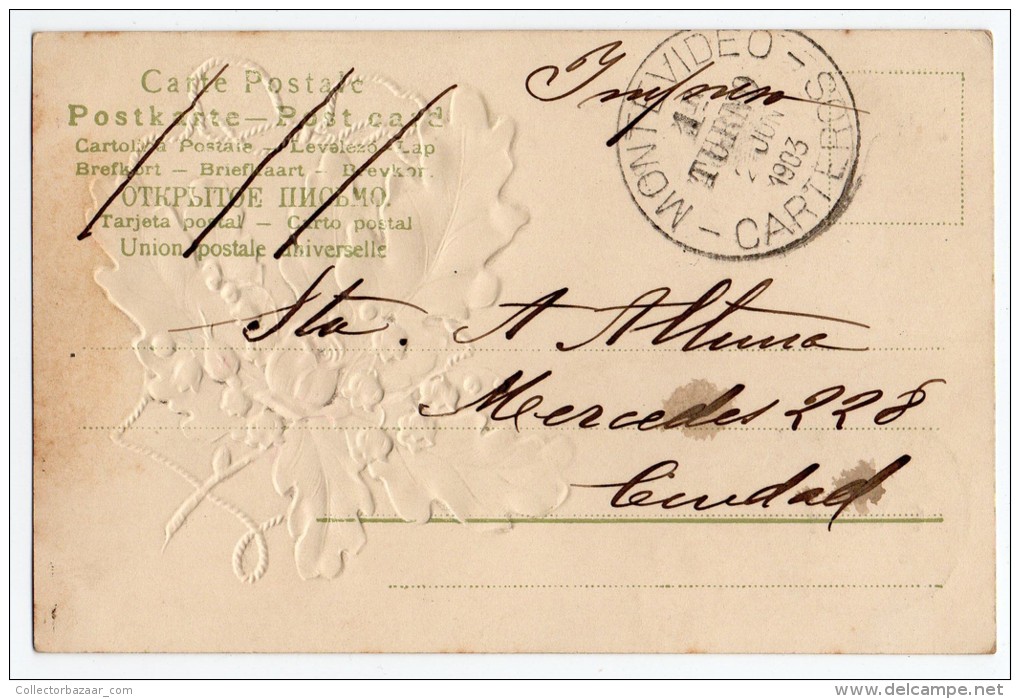 Carte Postale
Postkarte — Post card
Cartolina Postale — Levelező-Lap
Brefkort — Briefkaart — Brevkort
ОТКРЫТОЕ ПИСЬМО.
Tarjeta postal — Carto postal
Union postale universelle
Impreso
MONTEVIDEO - SUC
CARTEROS
TURNO
JUN
1903
Sta. A Altuna
Mercedes 228
Ciudad
CollectorBazaar_com
delcampe.net